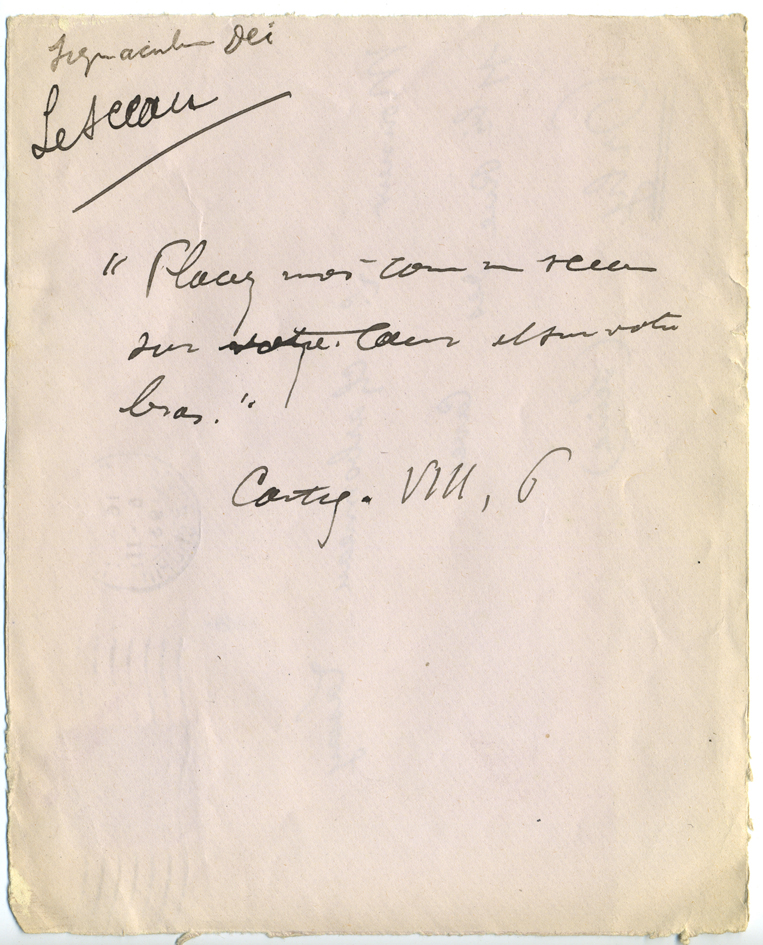 Signaculum Dei
Le Sceau
" Placez moi comme un sceau
sur votre Cœur et sur votre
bras. "
Cantiq. VIII, 6